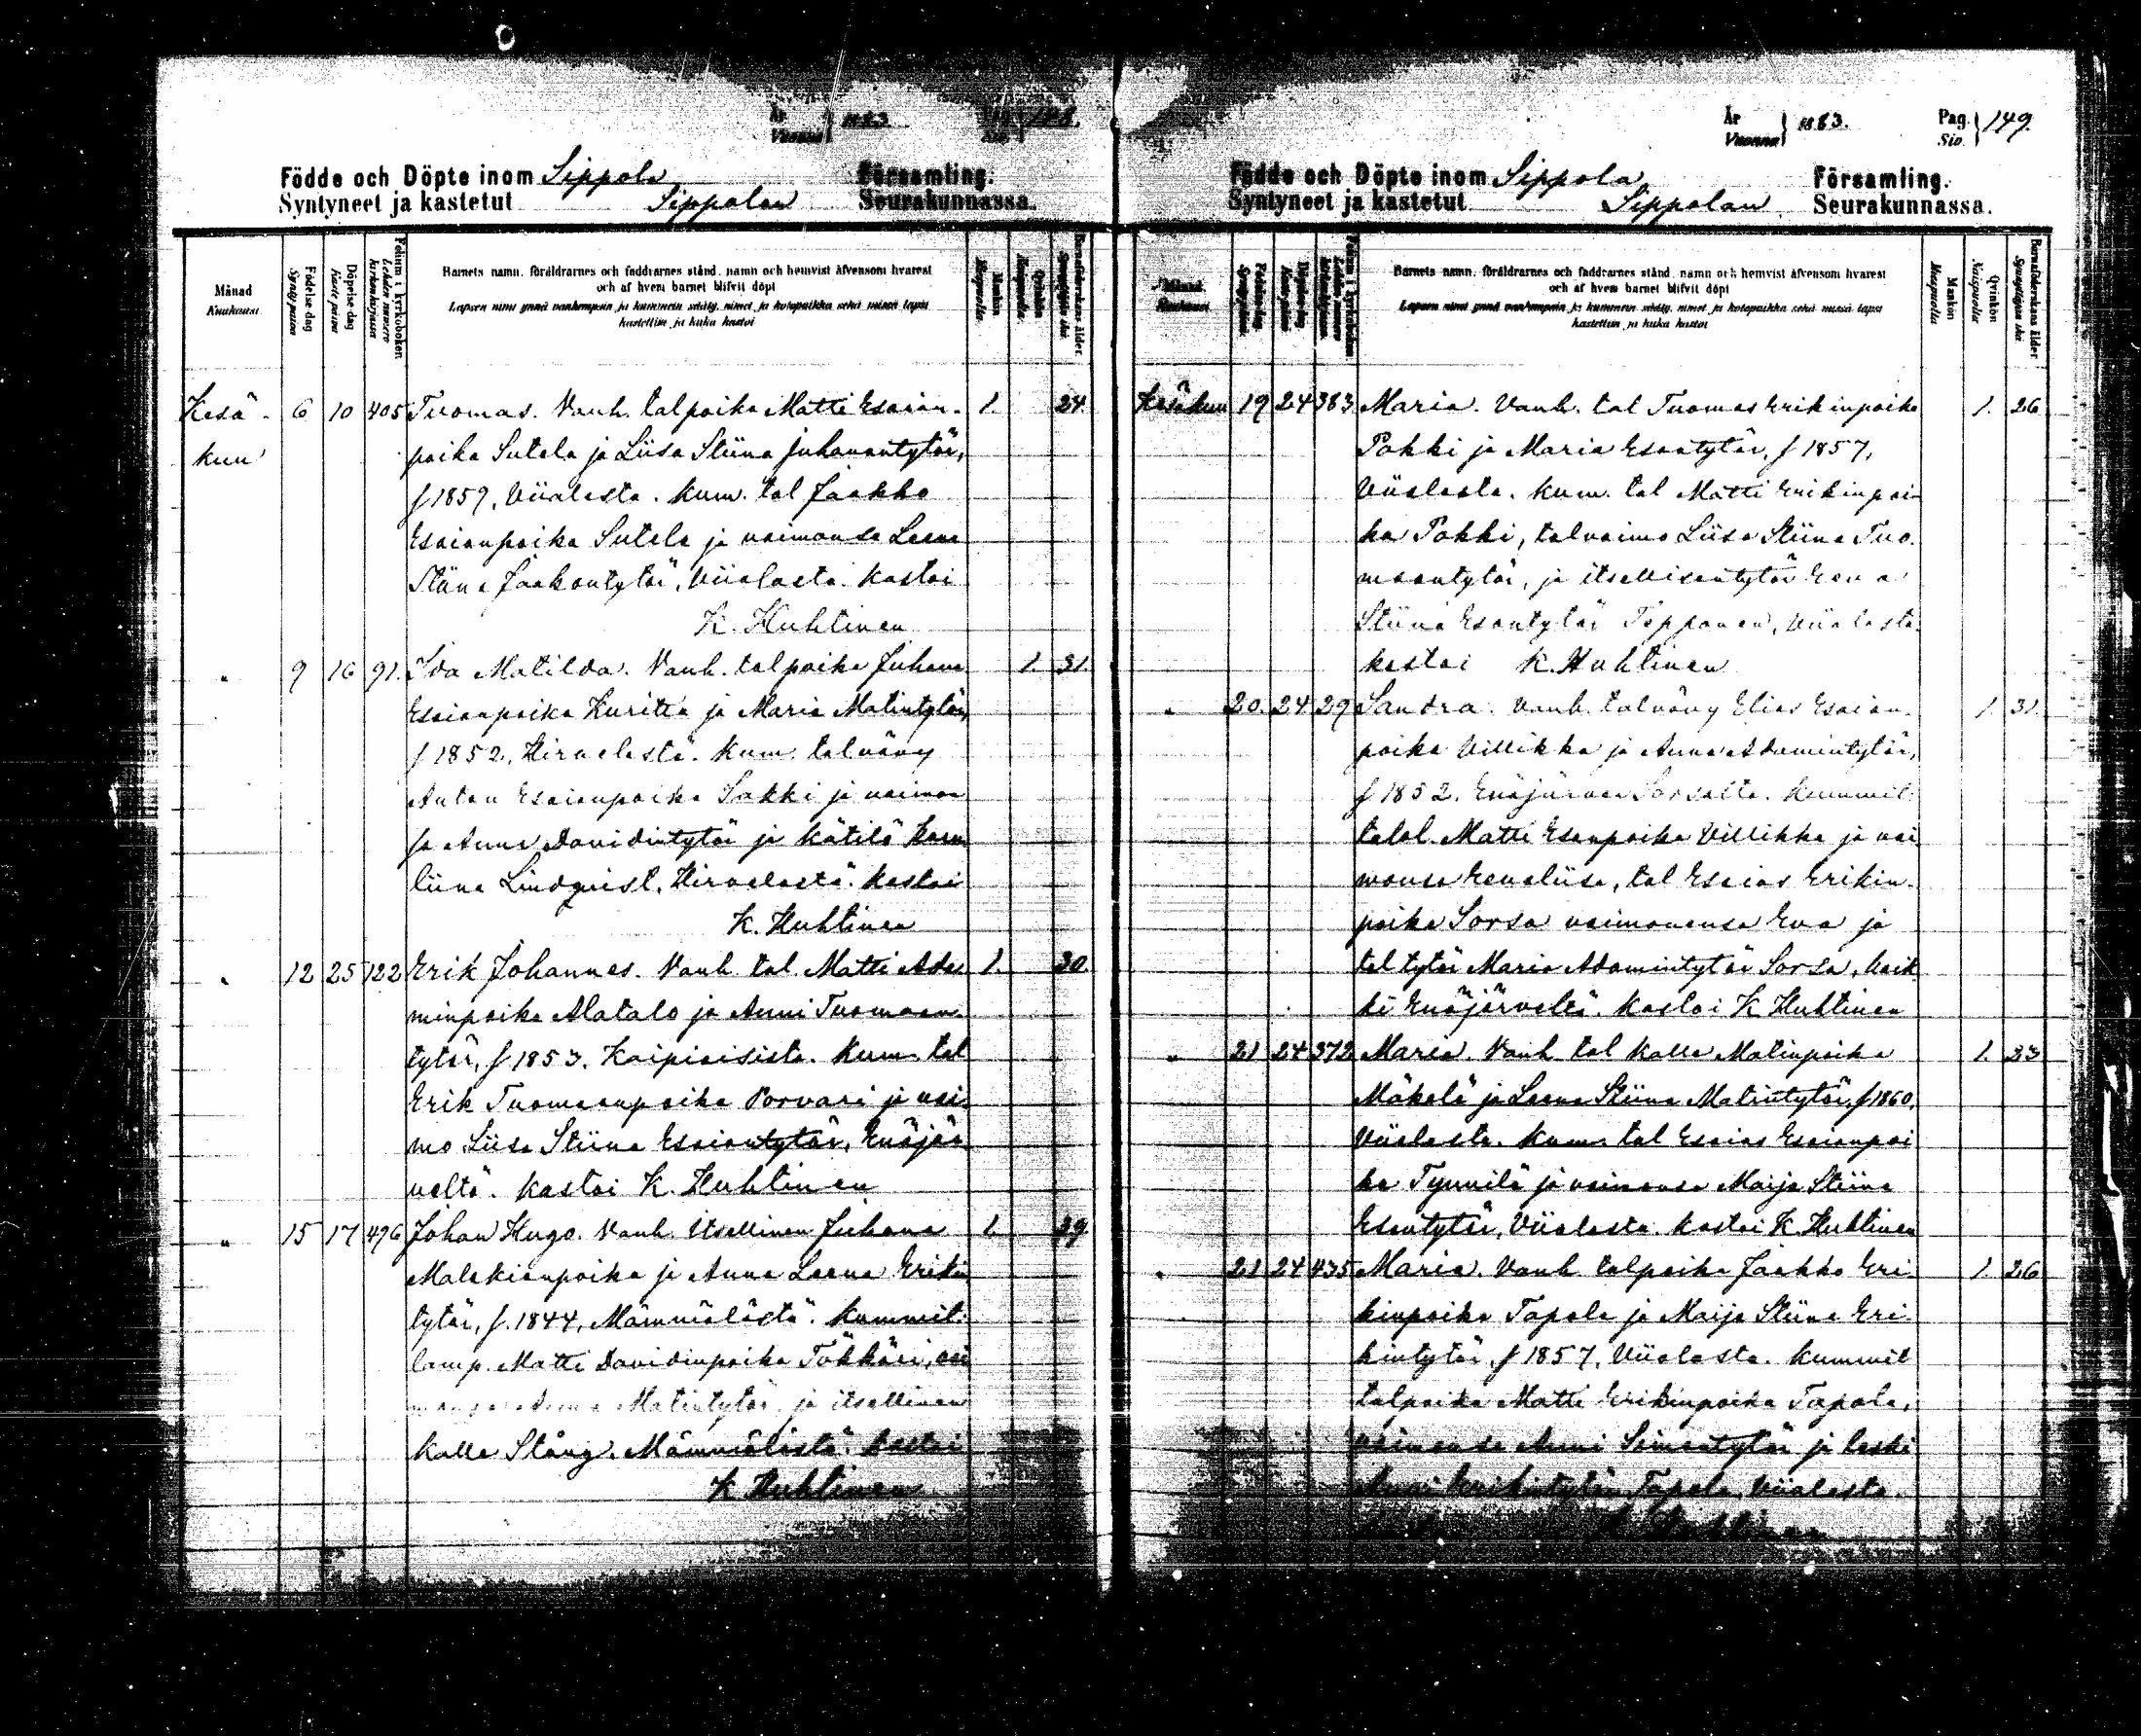 År
Vuonna } 1883.
Sio. } 148.
Födde och Döpte inom Sippola Församling.
Syntyneet ja kastetut Sippolan Seurakunnassa.
Månad
Kuukausi
Födelse-dag
Syntypäivä
Döpelse-dag
Kaste päivä
Folium i kyrkoboken
Lehden numero kirkonkirjassa
Barnets namn, föräldrarnes och faddrarnes stånd, namn och hemvist äfvensom hvarest
och af hvem barnet blifvit döpt
Lapsen nimi ynnä vanhempain ja kummein sääty, nimet ja kotopaikka sekä missä lapsi
kastettiin ja kuka kastoi
Mankön
Miespuolta
Qvinkön
Naispuolta
Barnaföderskans ålder.
Synnyttäjän ikä
Kesä- 6 10 405 Tuomas. Vanh. talpoika Matti Esaian- 1. 24.
kuu poika Sutela ja Liisa Stiina Juhanantytär,
f 1859, Viialasta. Kum. tal Jaakko
Esaianpoika Sutela ja vaimonsa Leena
Stiina Jaakontytär, Viialasta. Kastoi
K. Huhtinen
" 9 16 91. Ida Matilda. Vanh. talpoika Juhana 1. 31.
Esaianpoika Kuritta ja Maria Matintytär,
f 1852, Hirvelästä. Kum. talvävy
Anton Esaianpoika Sakki ja vaimon
sa Anna Davidintytär ja kätilö Karo
liina Lindqvist, Hirvelästä. Kastoi
K. Huhtinen
" 12 25 122 Erik Johannes. Vanh. tal. Matti Ada 1. 30.
minpoika Alatalo ja Anni Tuomaan
tytär, f 1853. Kaipiaisista. Kum. tal
Erik Tuomaanpoika Porvari ja vai
mo Liisa Stiina Esaiantytär, Enäjär
veltä. Kastoi K. Huhtinen
" 15 17 496 Johan Hugo. Vanh. Itsellinen Juhana 1. 39.
Malakianpoika ja Anna Leena Erikin
tytär, f. 1844, Mämmälästä. Kummit:
lamp. Matti Davidinpoika Tökkäri, vai
monsa Anna Matintytär ja itsellinen
Kalle Stång, Mämmälästä. Kastoi
K Huhtinen
År
Vuonna } 1883.
Pag.
Sio. } 149.
Födde och Döpte inom Sippola Församling.
Syntyneet ja kastetut Sippolan Seurakunnassa.
Månad
Kuukausi
Födelse-dag
Syntypäivä
Döpelse-dag
Kaste päivä
Folium i kyrkoboken
Lehden numero kirkonkirjassa
Barnets namn, föräldrarnes och faddrarnes stånd, namn och hemvist äfvensom hvarest
och af hvem barnet blifvit döpt
Lapsen nimi ynnä vanhempain ja kummein sääty, nimet ja kotopaikka sekä missä lapsi
kastettiin ja kuka kastoi
Mankön
Miespuolta
Qvinkön
Naispuolta
Barnaföderskans ålder
Synnyttäjän ikä
Kesäkuu 19 24 383 Maria. Vanh. tal Tuomas Erikinpoika 1. 26
Pokki ja Maria Esantytär, f 1857,
Viialasta. Kum. tal Matti Erikinpoi-
ka Pokki, talvaimo Liisa Stiina Tuo.
maantytär, ja itsellisentytär Eeva
Stiina Esantytär Topponen, Viialasta
kastoi K. Huhtinen
" 20. 24 29 Sandra. Vanh. talvävy Elias Esaian. 1. 31.
poika Villikka ja Anna Adamintytär,
f 1852. Enäjärven Sorsalta. Kummit:
talol. Matti Esanpoika Villikka ja vai
monsa Evaliisa, tal Esaias Erikin-
poika Sorsa vaimonensa Eva ja
tal tytär Maria Adamintytär Sorsa, kaik
ki Enäjärveltä. Kastoi K Huhtinen
" 21 24 372 Maria. Vanh. tal Kalle Matinpoika 1. 23
Mäkelä ja Leena Stiina Matintytär, f 1860,
Viialasta. Kum. tal Esaias Esaianpoi
ka Tynnilä ja vaimonsa Maija Stiina
Esantytär, Viialasta. Kastoi K Huhtinen
" 21 24 435 Maria. Vanh. talpoika Jaakko Eri- 1. 26
kinpoika Tapola ja Maija Stiina Eri-
kintytär, f 1857, Viialasta. Kummit
talpoika Matti Erikinpoika Tapola,
vaimonsa Anni Simontytär ja leski
Anni Erikintytär Tapola, Viialasta.
K Huhtinen